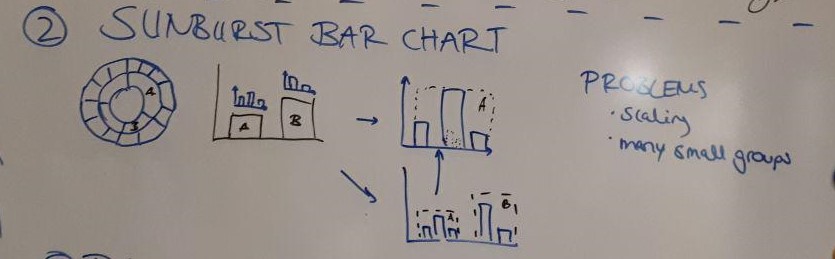 ② SUNBURST BAR CHART
A
B
A
B
A
A
B
PROBLEMS
· Scaling
· many small groups